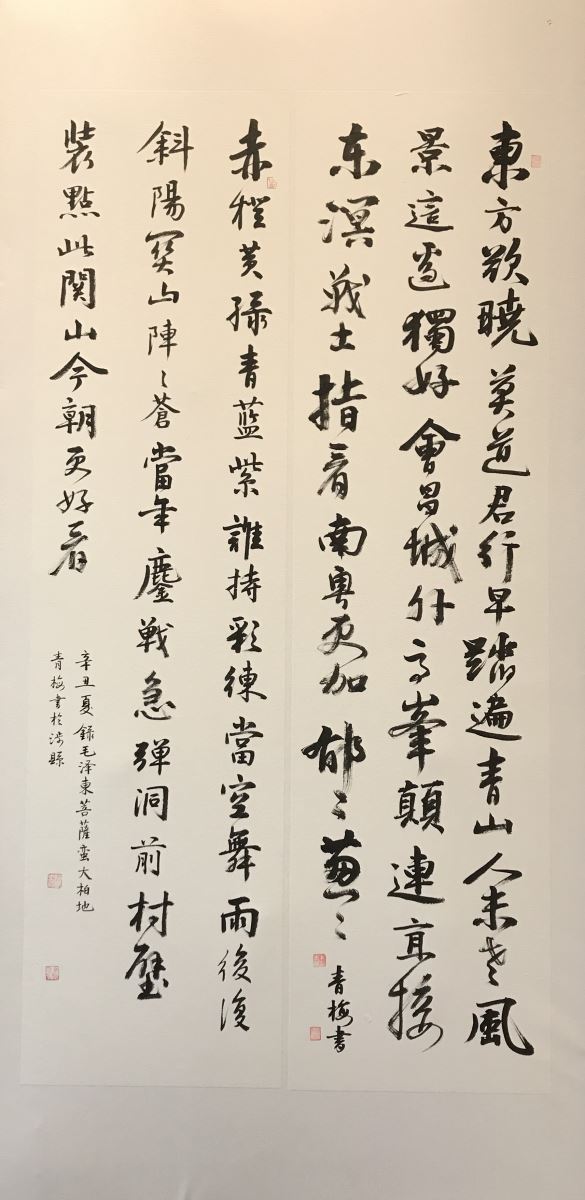 東方欲曉莫道君行早踏遍青山人未老風
景這邊獨好會昌城外高峯顛連亘接
东溟戰士指看南粤更加郁〻葱〻
青梅書
赤橙黄绿青蓝紫誰持彩練當空舞雨後復
斜陽関山陣〻蒼當年鏖戰急弹洞前村壁
裝點此関山今朝更好看
辛丑夏錄毛泽東菩薩蛮大柏地
青梅書於涉縣